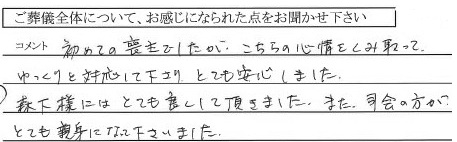 ご葬儀全体について、お感じになられた点をお聞かせ下さい
コメント 初めての喪主でしたが、こちらの心情をくみ取って、
ゆっくりと対応して下さり とても安心しました。
森下様には とても良くして頂きました。また、司会の方が、
とても親身になって下さいました。